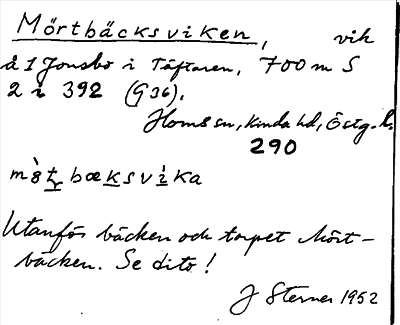 Mörtbäcksviken, vik
å 1 Jonsbo i Täftaren, 700 m S
2 i 392 (G 36).
Horns sn, Kinda hd, Östg. l.
290
Utanför bäcken och torpet Mört-
bäcken. Se dito!
J Sterner 1952